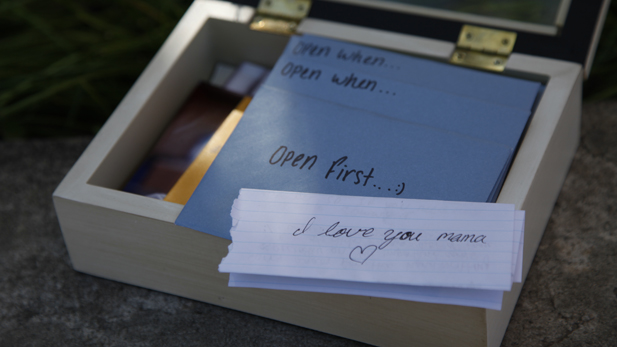 Open when...
Open when...
Open first...:)
I love you mama